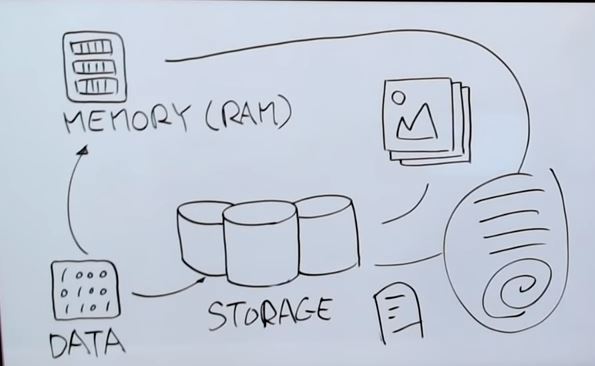 MEMORY (RAM)
1000
0100
1101
DATA
STORAGE